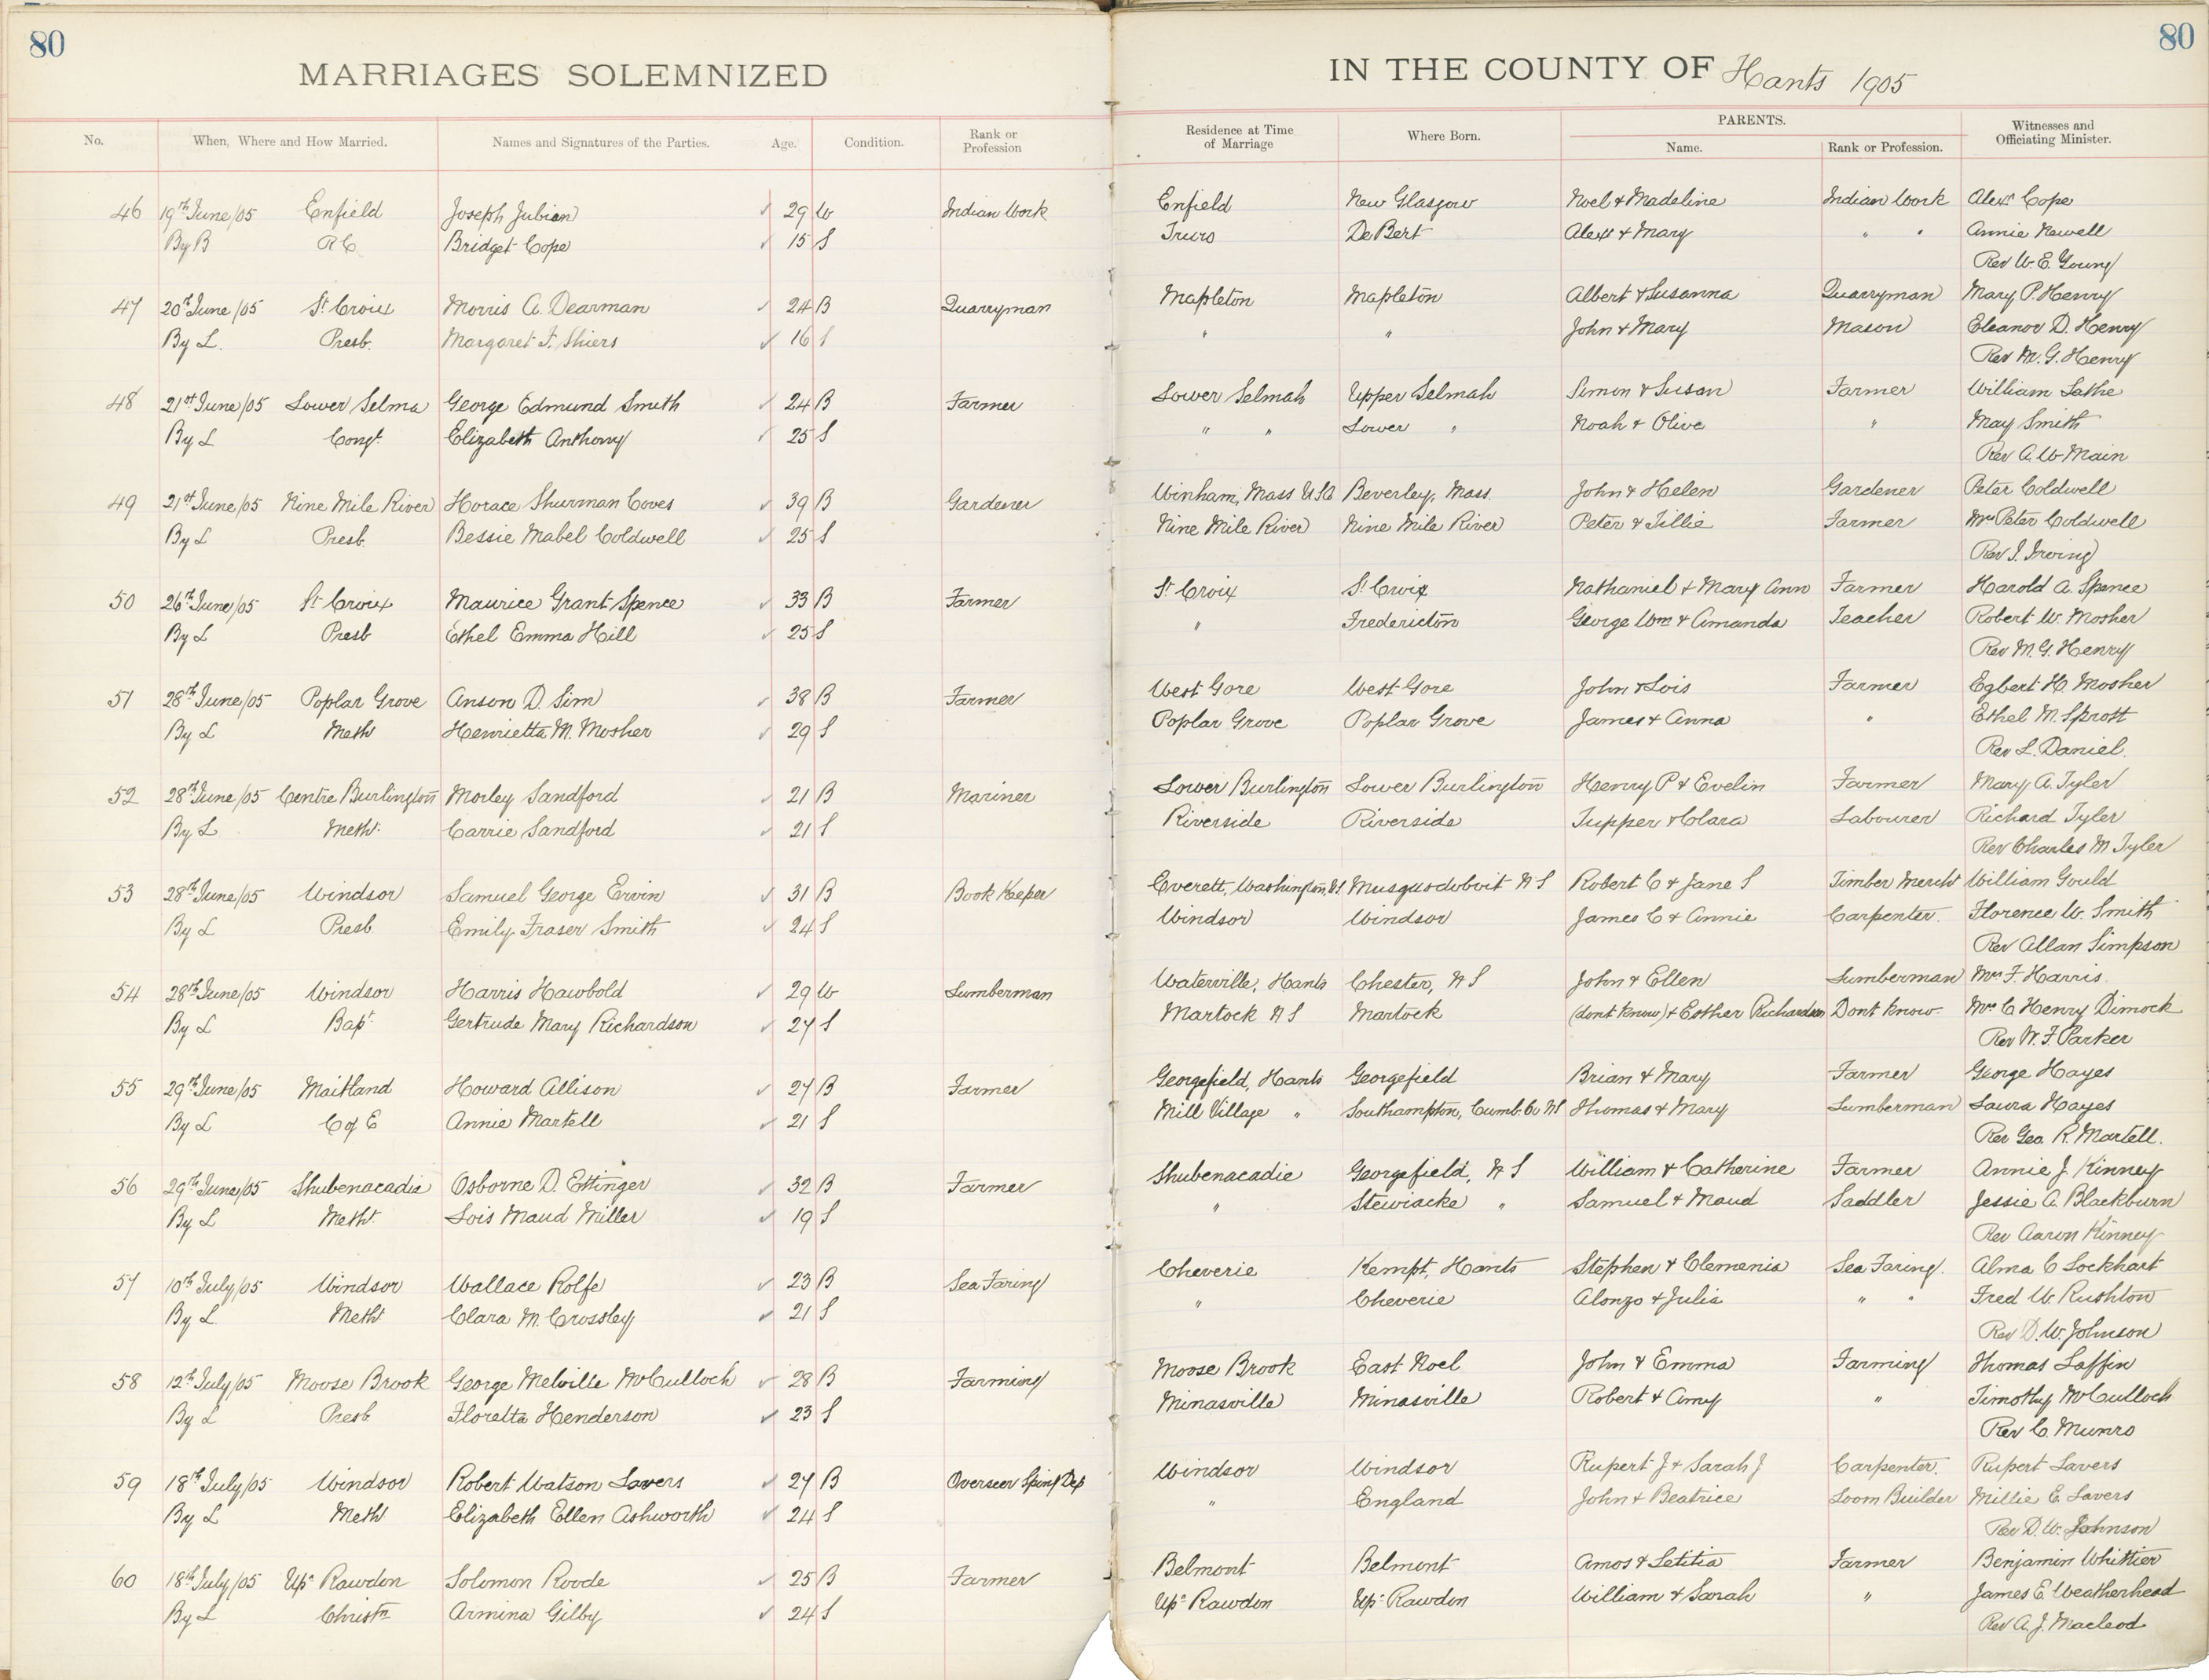 80
80
MARRIAGES SOLEMNIZED
IN THE COUNTY OF Hants 1905
No. When, Where and How Married. Names and Signatures of the Parties. Age. Condition. Rank or Profession Residence at Time of Marriage Where Born. PARENTS. Name. Rank or Profession. Witnesses and Officiating Minister.
46 19th June/05 Enfield Joseph Jubian 29 W Indian Work Enfield New Glasgow Noel & Madeline Indian Work Alexr Cope
By B R C Bridget Cope 15 S Truro De Bert Alexr & Mary " " Annie Newell
Rev W. E. Young
47 20th June/05 St Croix Morris A. Dearman 24 B Quarryman Mapleton Mapleton Albert & Susanna Quarryman Mary P. Henry
By L. Presb. Margaret F. Shiers 16 S " " John & Mary Mason Eleanor D. Henry
Rev M. G. Henry
48 21st June/05 Lower Selma George Edmund Smith 24 B Farmer Lower Selmah Upper Selmah Simon & Susan Farmer William Lathe
By L Congt. Elizabeth Anthony 25 S " " Lower " Noah & Olive " May Smith
Rev A. W Main
49 21st June/05 Nine Mile River Horace Shurman Coves 39 B Gardener Winham, Mass USA Beverley, Mass. John & Helen Gardener Peter Coldwell
By L Presb. Bessie Mabel Coldwell 25 S Nine Mile River Nine Mile River Peter & Tillie Farmer Mrs Peter Coldwell
Rev J. Irving
50 26th June/05 St Croix Maurice Grant Spence 33 B Farmer St Croix St Croix Nathaniel & Mary Ann Farmer Harold A. Spence
By L Presb Ethel Emma Hill 25 S " Fredericton George Wm & Amanda Teacher Robert W. Mosher
Rev M. G. Henry
51 28th June/05 Poplar Grove Anson D. Sim 38 B Farmer West Gore West Gore John & Lois Farmer Egbert H. Mosher
By L Meth Henrietta M. Mosher 29 S Poplar Grove Poplar Grove James & Anna " Ethel M. Sprott
Rev L. Daniel.
52 28th June/05 Centre Burlington Morley Sandford 21 B Mariner Lower Burlington Lower Burlington Henry P & Evelin Farmer Mary A. Tyler
By L Meth. Carrie Sandford 21 S Riverside Riverside Tupper & Clara Labourer Richard Tyler
Rev Charles M Tyler
53 28th June/05 Windsor Samuel George Ervin 31 B Book Keeper Everett, Washington, U.S. Musquodoboit N S Robert C & Jane S Timber Mercht William Gould
By L Presb Emily Fraser Smith 24 S Windsor Windsor James C & Annie Carpenter. Florence W. Smith
Rev Allan Simpson
54 28th June/05 Windsor Harris Hawbold 29 W Lumberman Waterville, Hants Chester, N S John & Ellen Lumberman Mrs F. Harris.
By L Bapt. Gertrude Mary Richardson 27 S Martock N S Martock (dont know) & Esther Richardson Dont know Mrs C Henry Dimock
Rev W. F Parker
55 29th June/05 Maitland Howard Allison 27 B Farmer Georgefield, Hants Georgefield Brian & Mary Farmer George Hayes
By L C of E Annie Martell 21 S Mill Village " Southampton, Cumb. Co NS Thomas & Mary Lumberman Laura Hayes
Rev Geo. R. Martell.
56 29th June/05 Shubenacadie Osborne D. Ettinger 32 B Farmer Shubenacadie Georgefield, N S William & Catherine Farmer Annie J. Kinney
By L Meth. Lois Maud Miller 19 S " Stewiacke " Samuel & Maud Saddler Jessie A. Blackburn
Rev Aaron Kinney
57 10th July/05 Windsor Wallace Rolfe 23 B Sea Faring Cheverie Kempt, Hants Stephen & Clemenia Sea Faring. Alma C Lockhart
By L Meth Clara M. Crossley 21 S " Cheverie Alonzo & Julia " " Fred W. Rushton
Rev D. W. Johnson
58 12th July/05 Moose Brook George Melville McCulloch 28 B Farming Moose Brook East Noel John & Emma Farming Thomas Laffin
By L Presb Floretta Henderson 23 S Minasville Minasville Robert & Amy " Timothy McCulloch
Rev C. Munro
59 18th July/05 Windsor Robert Watson Lavers 27 B Overseer Sping Dep Windsor Windsor Rupert J & Sarah J Carpenter. Rupert Lavers
By L Meth Elizabeth Ellen Ashworth 24 S " England John & Beatrice Loom Builder Millie E. Lavers
Rev D. W. Johnson
60 18th July/05 Upr Rawdon Solomon Roode 25 B Farmer Belmont Belmont Amos & Letitia Farmer Benjamin Whittier
By L Christn Armina Gilby 24 S Upr Rawdon Upr Rawdon William & Sarah " James E. Weatherhead
Rev A. J. Macleod